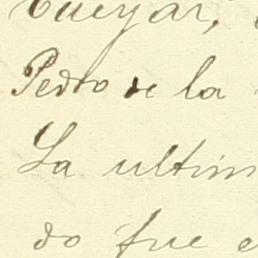 Cuellar,
Pedro de la
La ultim
do fue e